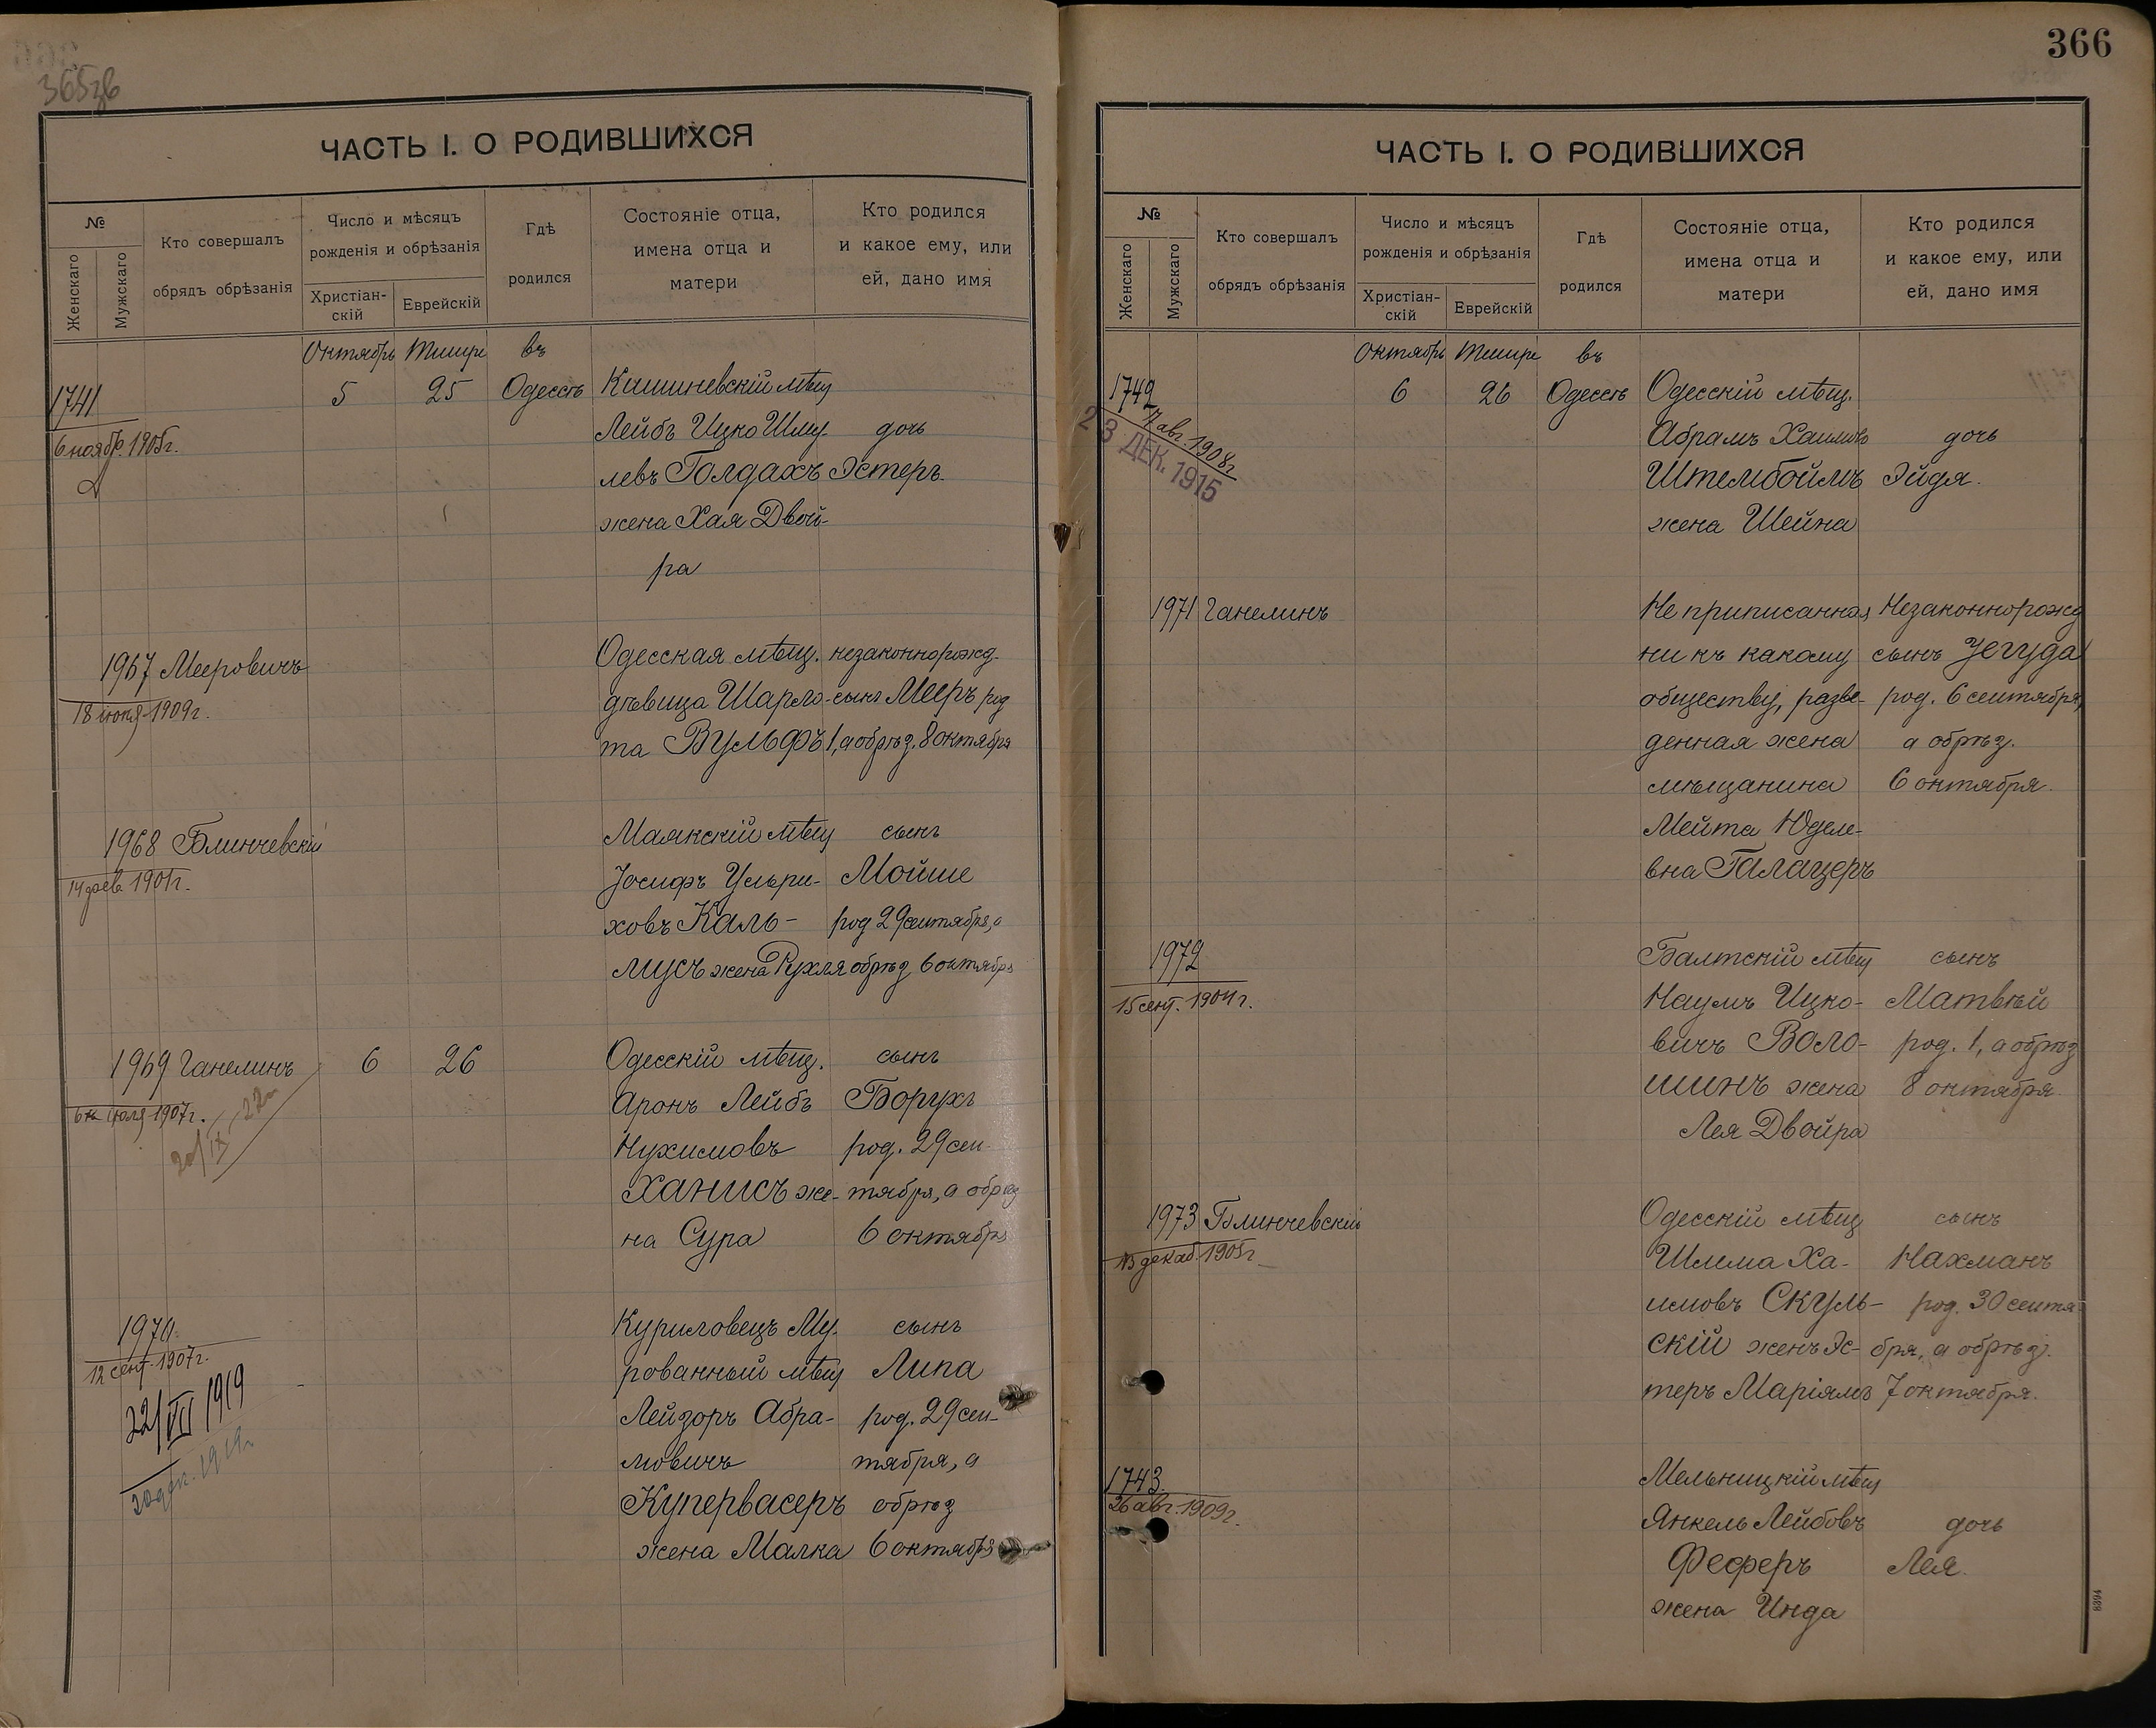 365зв
ЧАСТЬ I. О РОДИВШИХСЯ
№
Женскаго
Мужскаго
Кто совершалъ
обрядъ обрѣзанія
Число и мѣсяцъ
рожденія и обрѣзанія
Христіан-
скій
Еврейскій
Гдѣ
родился
Состояніе отца,
имена отца и
матери
Кто родился
и какое ему, или
ей, дано имя
Октябрь Тишре въ
1741 5 25 Одессѣ Кишиневскій мѣщ
6 ноябр. 1905г. Лейбъ Ицко Шму- дочь
левъ Голдахъ Эстеръ.
жена Хая Двой-
ра
1967 Мееровичъ Одесская мѣщ. незаконнорожд.
18 1909г. дѣвица Шарло- сынъ Мееръ род
та Вульфъ 1, а обрѣз. 8 октября
1968 Блинчевскій Маякскій мѣщ сынъ
14 фев. Іосифъ Ульри- Мойше
ховъ Каль- род 29 сентября, а
мусъ жена Рухля обрѣз 6 октября
1969 Ганелинъ 6 26 Одесскій мѣщ. сынъ
6го іюля 1907г. Аронъ Лейбъ Борухъ
Нухимовъ род. 29 сен-
Ханисъ же- тября, а обрѣз
на Сура 6 октября
1970 Куриловецъ Му- сынъ
12 сент. 1907г. рованный мѣщ Липа
22/VII 1919 Лейзоръ Абра- род. 29 сен-
1919г мовичъ тября, а
Купервасеръ обрѣз
жена Малка 6 октября
366
ЧАСТЬ I. О РОДИВШИХСЯ
№
Женскаго
Мужскаго
Кто совершалъ
обрядъ обрѣзанія
Число и мѣсяцъ
рожденія и обрѣзанія
Христіан-
скій
Еврейскій
Гдѣ
родился
Состояніе отца,
имена отца и
матери
Кто родился
и какое ему, или
ей, дано имя
Октябрь Тишре въ
1742 6 26 Одессѣ Одесскій мѣщ.
авг. 1908г Абрамъ Хаимовъ дочь
23 ДЕК. 1915 Штембоймъ Эйдя.
жена Шейна
1971 Ганелинъ Не приписанная Незаконнорожд
ни къ какому сынъ Іегуда
обществу, разве- род. 6 сентября,
денная жена а обрѣз.
мѣщанина 6 октября.
Мейта Юделе-
вна Галацеръ
1972 Балтскій мѣщ сынъ
15 сент. 1904г. Наумъ Ицко- Матвѣй
вичъ Воло- род. 1, а обрѣз
шинъ жена 8 октября.
Лея Двойра
1973 Блинчевскій Одесскій мѣщ сынъ
декаб. 1905г Шлима Ха- Нахманъ
имовъ Скуль- род. 30 сентя-
скій жена Эс- бря, а обрѣз.
теръ Маріямъ 7 октября.
1743 Мельницкій мѣщ
26 авг. 1909г. Янкель Лейбовъ дочь
Феферъ Лея.
жена Инда
8394